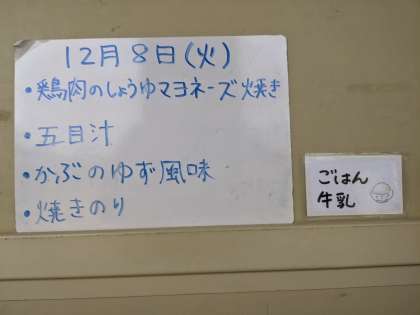 12月8日(火)
・鶏肉のしょうゆマヨネーズ焼き
・五目汁
・かぶのゆず風味
・焼きのり
ごはん
牛乳